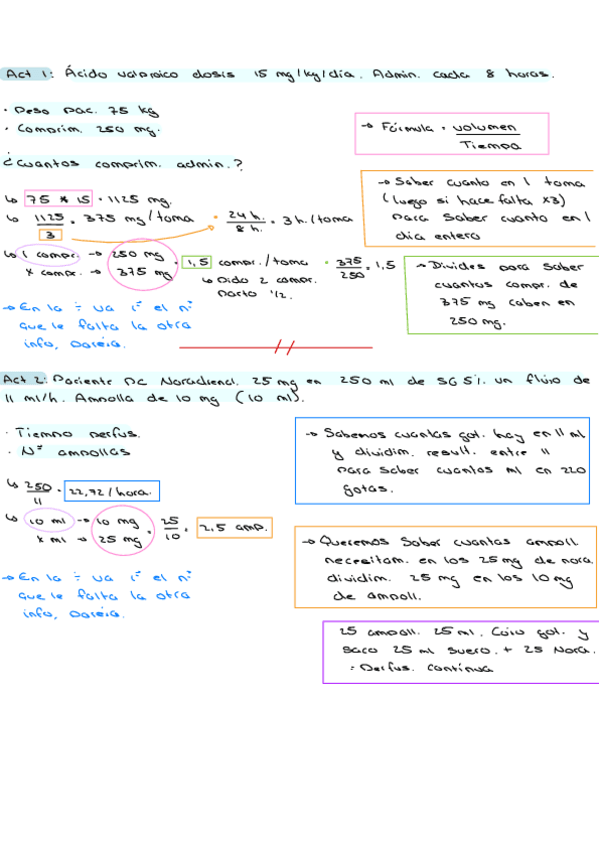 Act 1: Ácido valproico dosis 15 mg/kg/día. Admin. cada 8 horas.
· Peso pac. 75 kg
· Comprim. 250 mg.
→ Fórmula = volumen / Tiempo
¿Cuantos comprim. admin.?
↳ 75 * 15 = 1125 mg.
↳ 1125 / 3 = 375 mg/toma · 24 h. / 8 h. = 3 h./toma
→ Saber cuanto en 1 toma
(luego si hace falta x3)
para saber cuanto en 1
día entero
↳ 1 compr. → 250 mg
x compr. → 375 mg
= 1,5 compr./toma · 375 / 250 = 1,5
↳ Pido 2 compr.
parto 1/2.
→ Divides para saber
cuantos compr. de
375 mg caben en
250 mg.
→ En la ÷ va 1º el nº
que le falta la otra
info, pareja.
Act 2: Paciente pc Noradrenal. 25 mg en 250 ml de SG 5%. un flujo de
11 ml/h. Ampolla de 10 mg (10 ml).
· Tiempo perfus.
· Nº ampollas
→ Sabemos cuantas got. hay en 11 ml
y dividim. result. entre 11
para saber cuantos ml en 220
gotas.
↳ 250 / 11 = 22,72/hora.
↳ 10 ml → 10 mg
x ml → 25 mg
= 25 / 10 = 2,5 amp.
→ Queremos saber cuantas ampoll.
necesitam. en los 25 mg de nora.
dividim. 25 mg en los 10 mg
de ampoll.
→ En la ÷ va 1º el nº
que le falta la otra
info, pareja.
25 ampoll. 25 ml. Cojo got. y
saco 25 ml suero. + 25 Nora.
= Perfus. continua